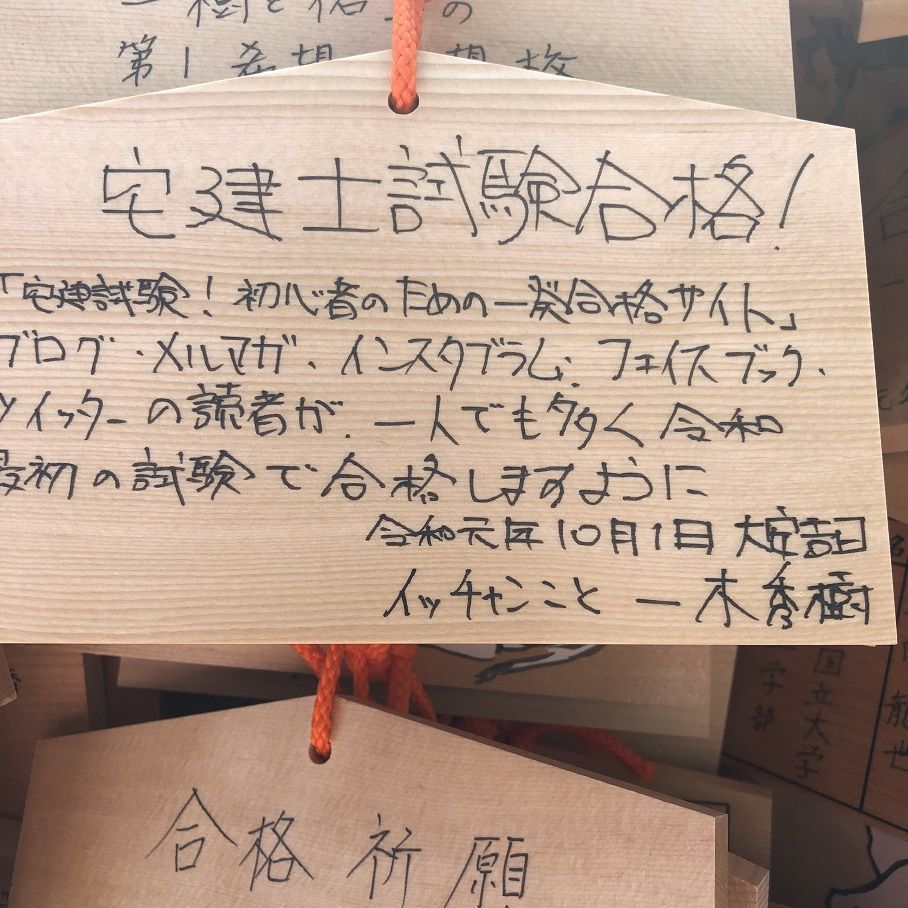 第1希望
宅建士試験合格!
「宅建試験!初心者のための一発合格サイト」
ブログ・メルマガ、インスタグラム、フェイスブック、
ツイッターの読者が、一人でも多く令和
最初の試験で合格しますように
令和元年10月1日 大安吉日
イッチャンこと 一木秀樹
合格祈願
国立大学
学部
龍世